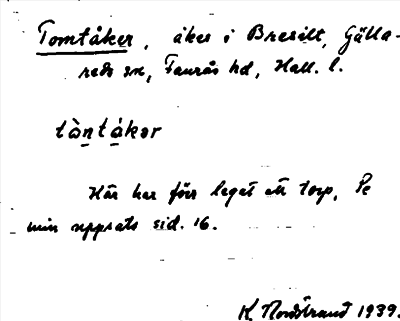 Tomtåker, åker i Bresilt, Gälla-
reds sn, Faurås hd, Hall. l.
tàntákər
Här har förr legat ett torp, Se
min uppsats sid. 16.
K. Nordstrand 1939.